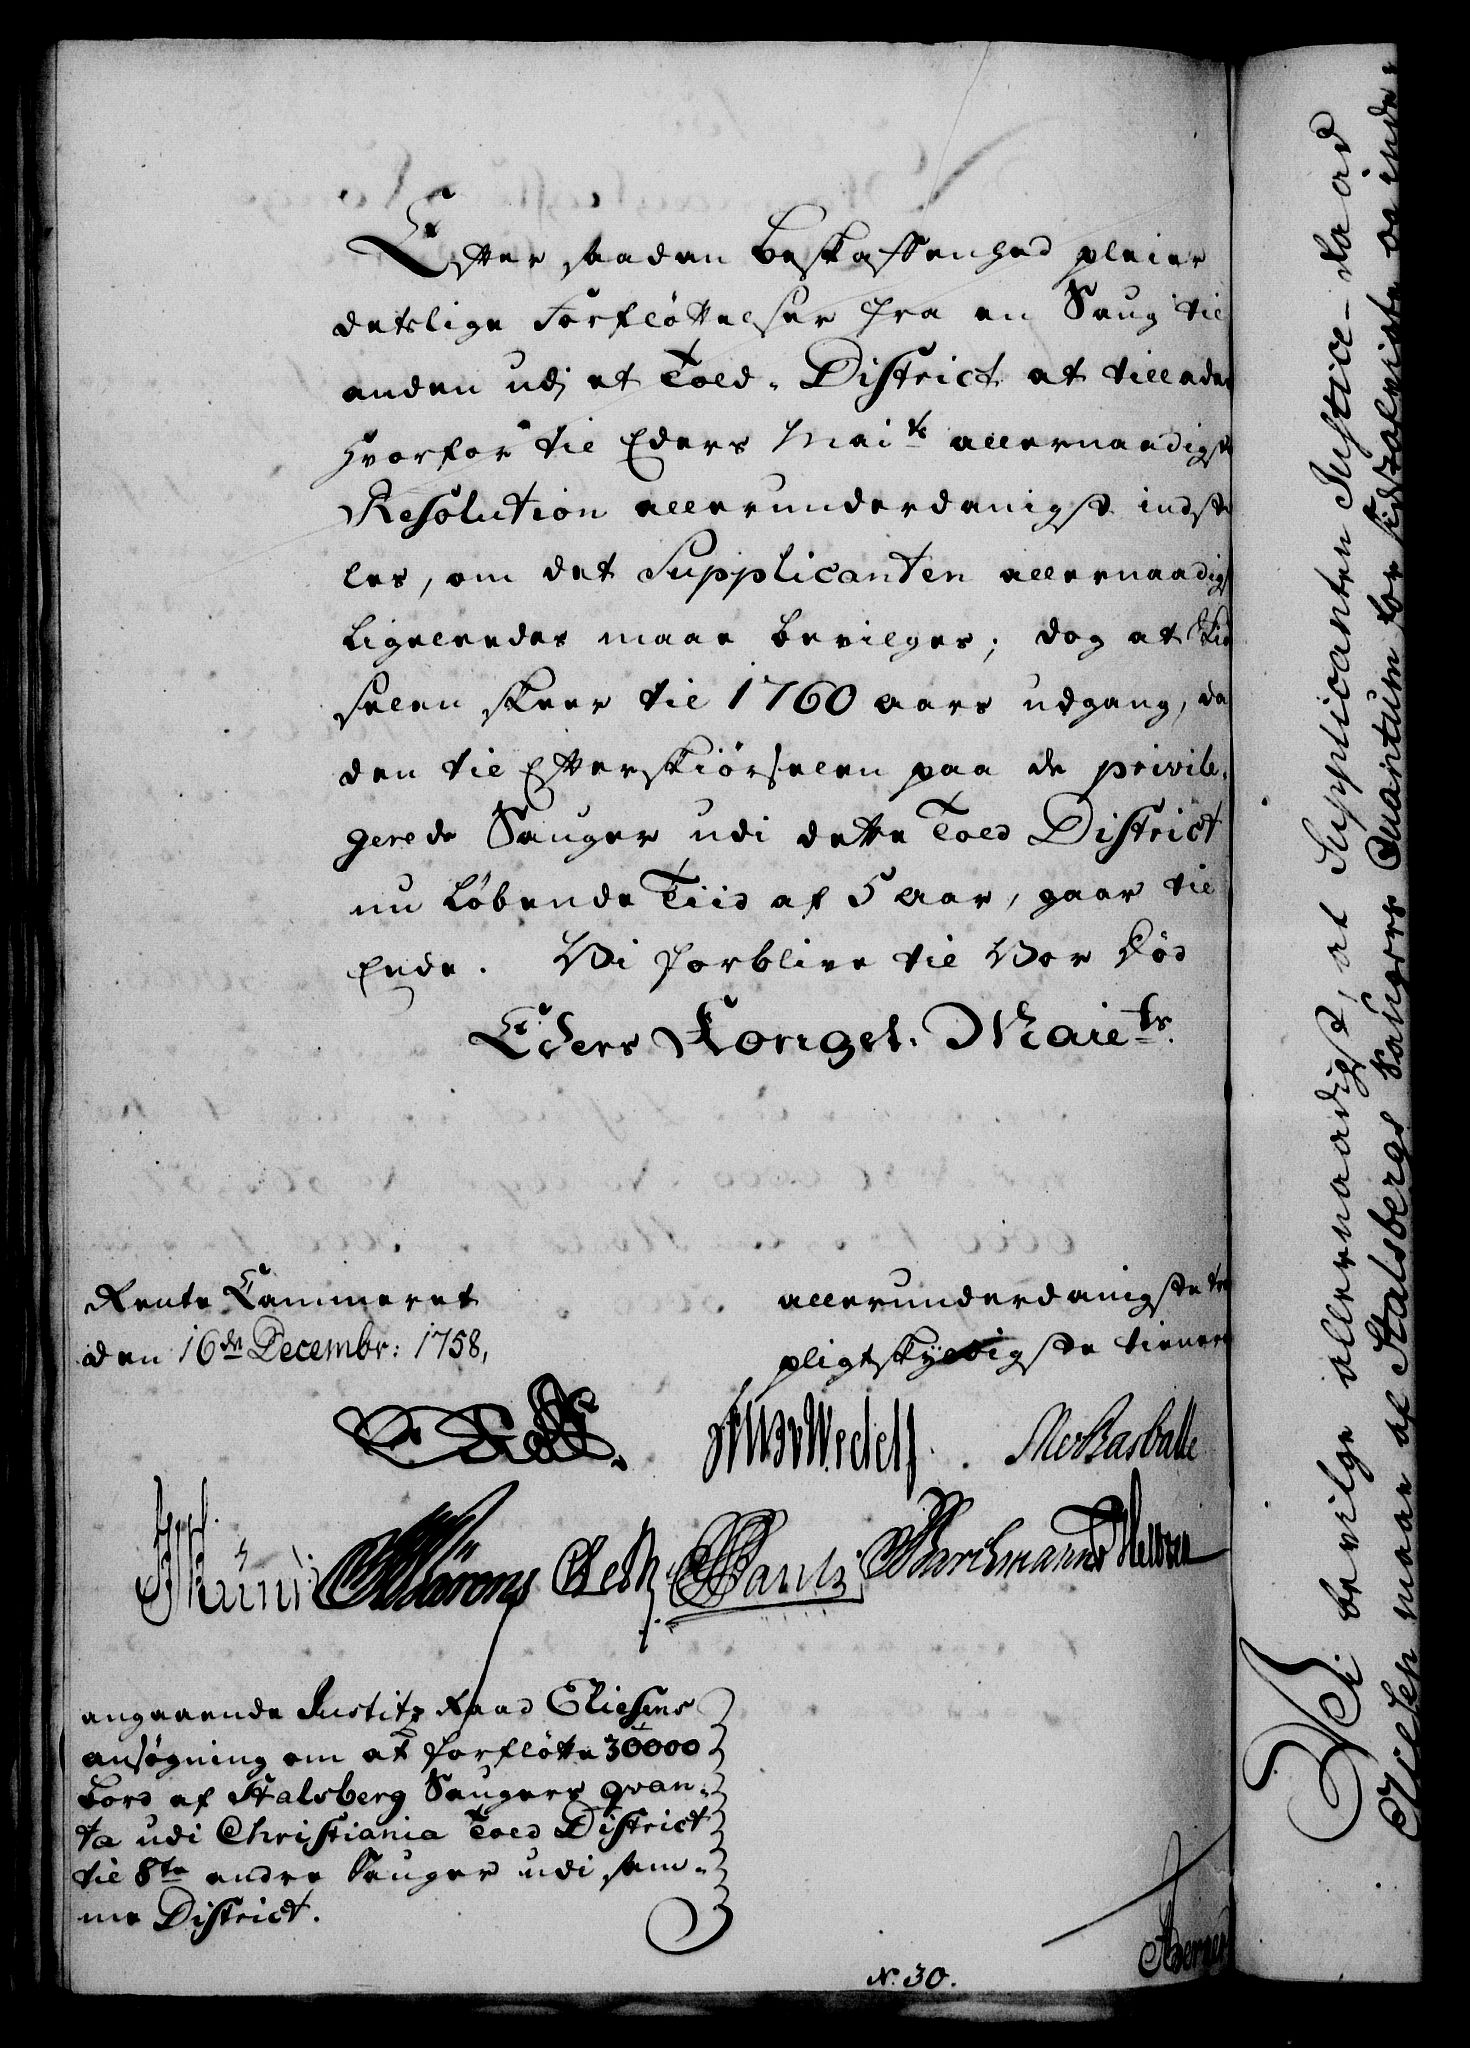 Efter saadan beskaffenhed pleier
detslige Forfløttelser fra en Saug til
anden udj et Told-District at tillades
hvorfor til Eders Maits allernaadigste
Resolution allerunderdanigst indstil
les, om det Supplicanten allernaadigst
ligeleedes maae bevilges; dog at
seelen skeer til 1760 aars udgang, da
den til Efterskiørselen paa de privile-
gerede Sauger udi dette Told District
nu løbende Tiid af 5 Aar, gaar til
Ende. Vi forblive til Vor Død
Eders Kongel. Maiets.
Rente Cammeret
den 16de Decembr: 1758,
allerunderdanigste
pligtskyldigste tienere
Wedell
angaaende Justitz Raad Eliesens
ansøgning om at forfløtte 30000
Bord af Stalsberg Saugers qvan-
ta udi Christiania Told District
til 8te andre Sauger udi sam-
me District.
N. 30.
Vi bevilge allernaadigst, at Supplicanten Justice-Raad
Eliesen maae af Stalsbergs Saugers Quantum